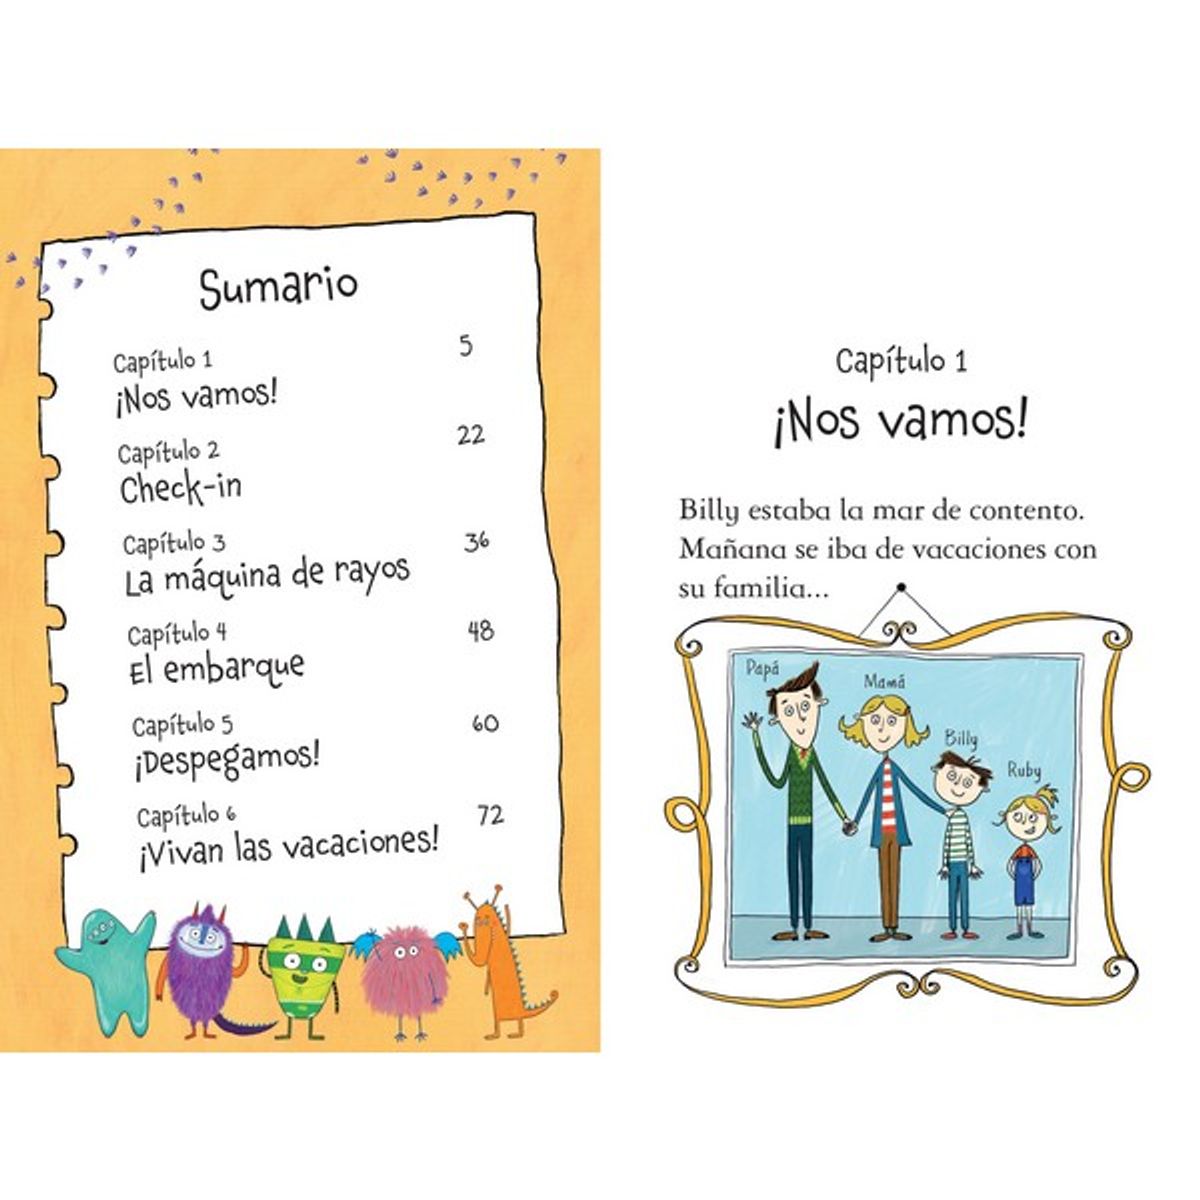 Sumario
Capítulo 1 5
¡Nos vamos!
Capítulo 2 22
Check-in
Capítulo 3 36
La máquina de rayos
Capítulo 4 48
El embarque
Capítulo 5 60
¡Despegamos!
Capítulo 6 72
¡Vivan las vacaciones!
Capítulo 1
¡Nos vamos!
Billy estaba la mar de contento.
Mañana se iba de vacaciones con
su familia...
Papá
Mamá
Billy
Ruby